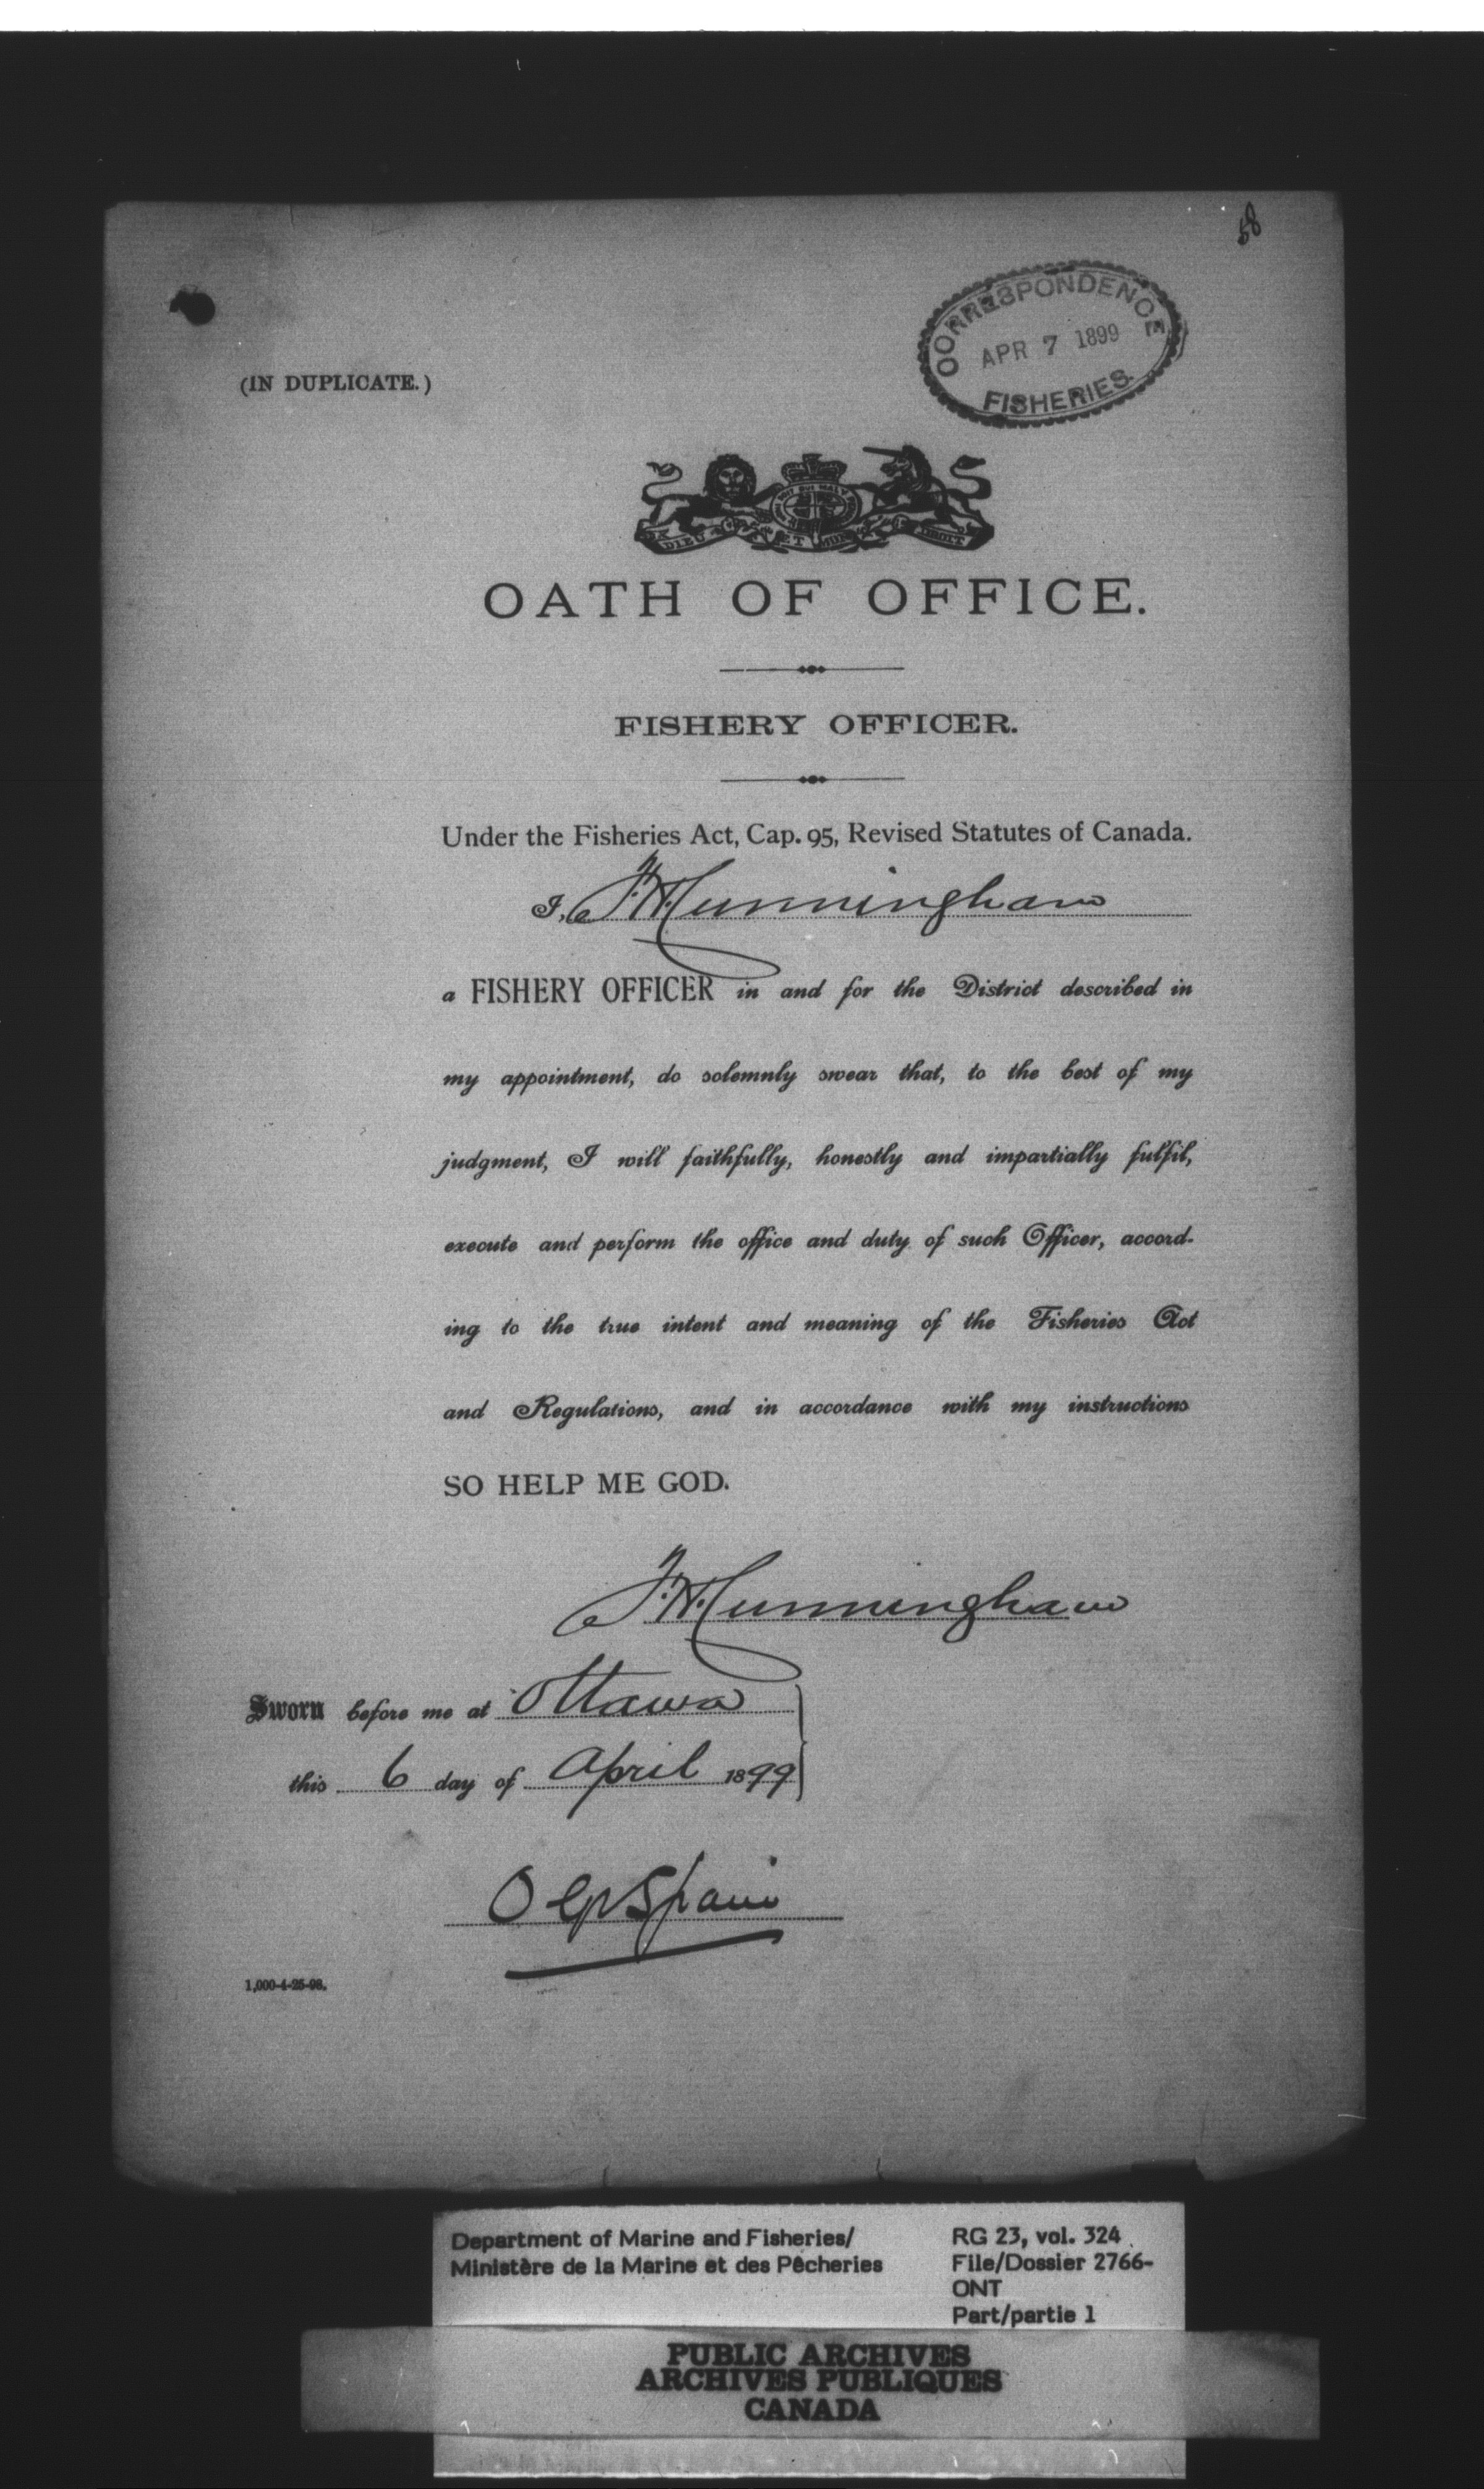 58
CORRESPONDENCE
APR 7 1899
FISHERIES.
(IN DUPLICATE.)
DIEU ET MON DROIT
OATH OF OFFICE.
FISHERY OFFICER.
Under the Fisheries Act, Cap. 95, Revised Statutes of Canada.
I, F.H. Cunningham
a FISHERY OFFICER in and for the District described in
my appointment, do solemnly swear that, to the best of my
judgment, I will faithfully, honestly and impartially fulfil,
execute and perform the office and duty of such Officer, accord-
ing to the true intent and meaning of the Fisheries Act
and Regulations, and in accordance with my instructions
SO HELP ME GOD.
F.H. Cunningham
Sworn before me at Ottawa
this 6 day of April 1899
O G V Spain
1,000-4-25-98.
Department of Marine and Fisheries/
Ministère de la Marine et des Pêcheries
RG 23, vol. 324
File/Dossier 2766-
ONT
Part/partie 1
PUBLIC ARCHIVES
ARCHIVES PUBLIQUES
CANADA